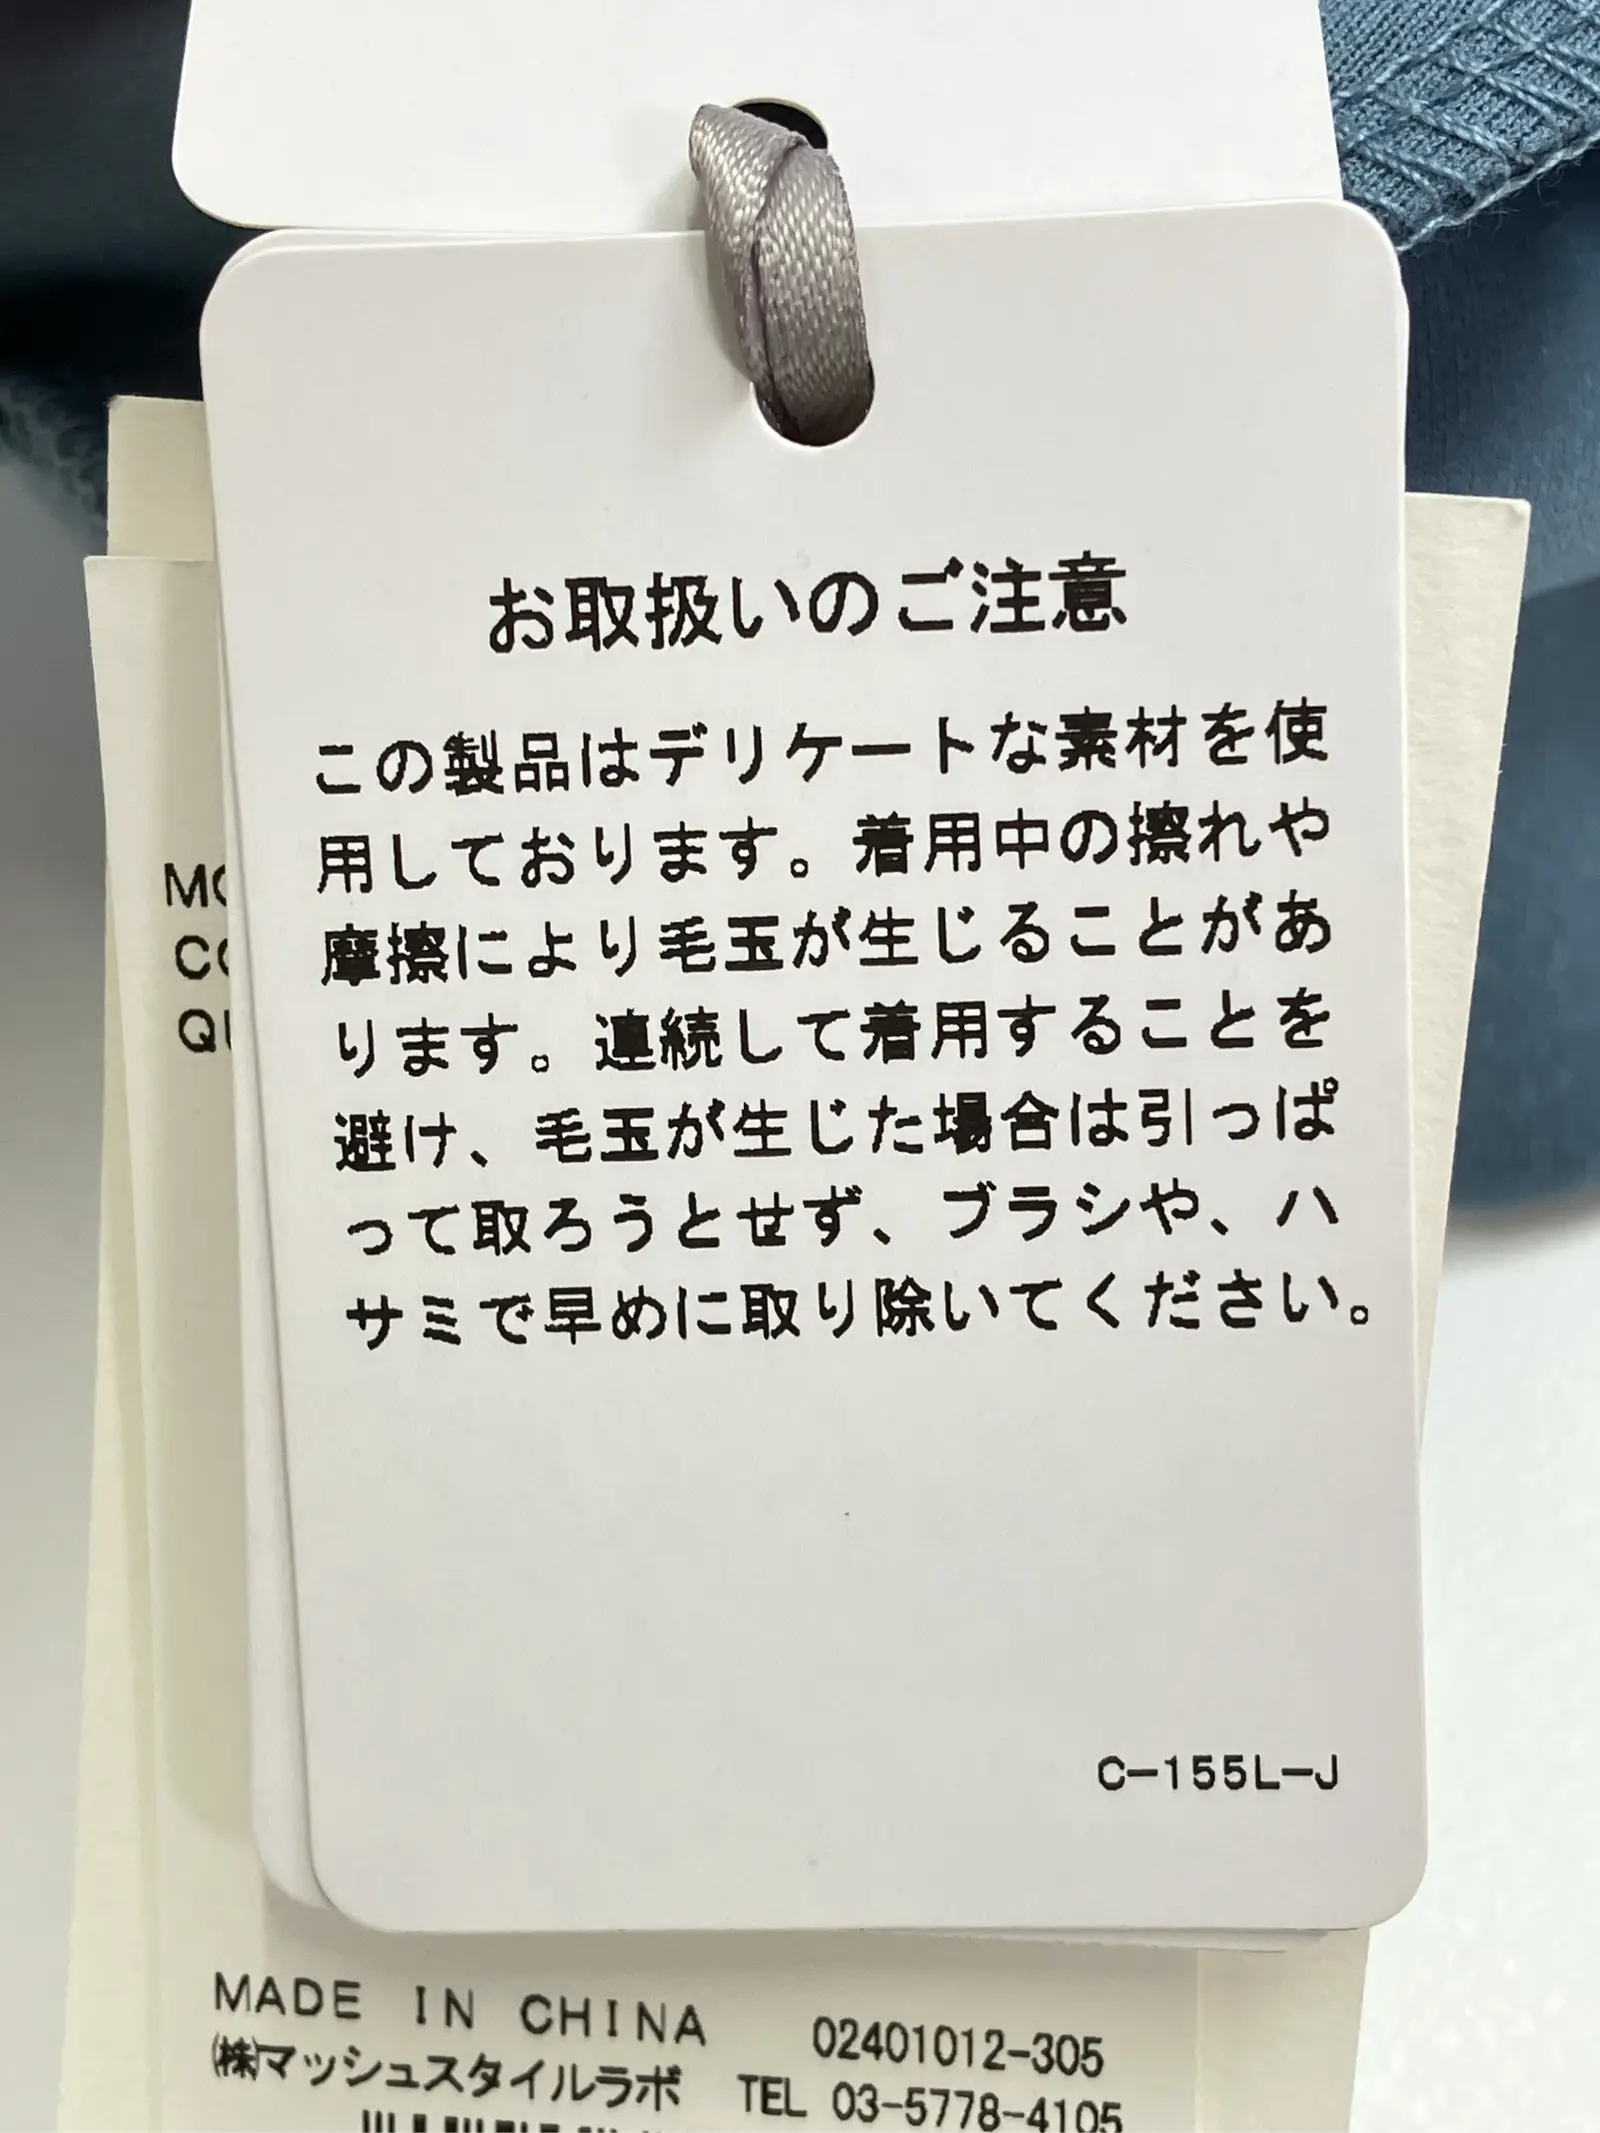 お取扱いのご注意
この製品はデリケートな素材を使
用しております。着用中の擦れや
摩擦により毛玉が生じることがあ
ります。連続して着用することを
避け、毛玉が生じた場合は引っぱ
って取ろうとせず、ブラシや、ハ
サミで早めに取り除いてください。
C-155L-J
MADE IN CHINA
02401012-305
㈱マッシュスタイルラボ TEL 03-5778-4105